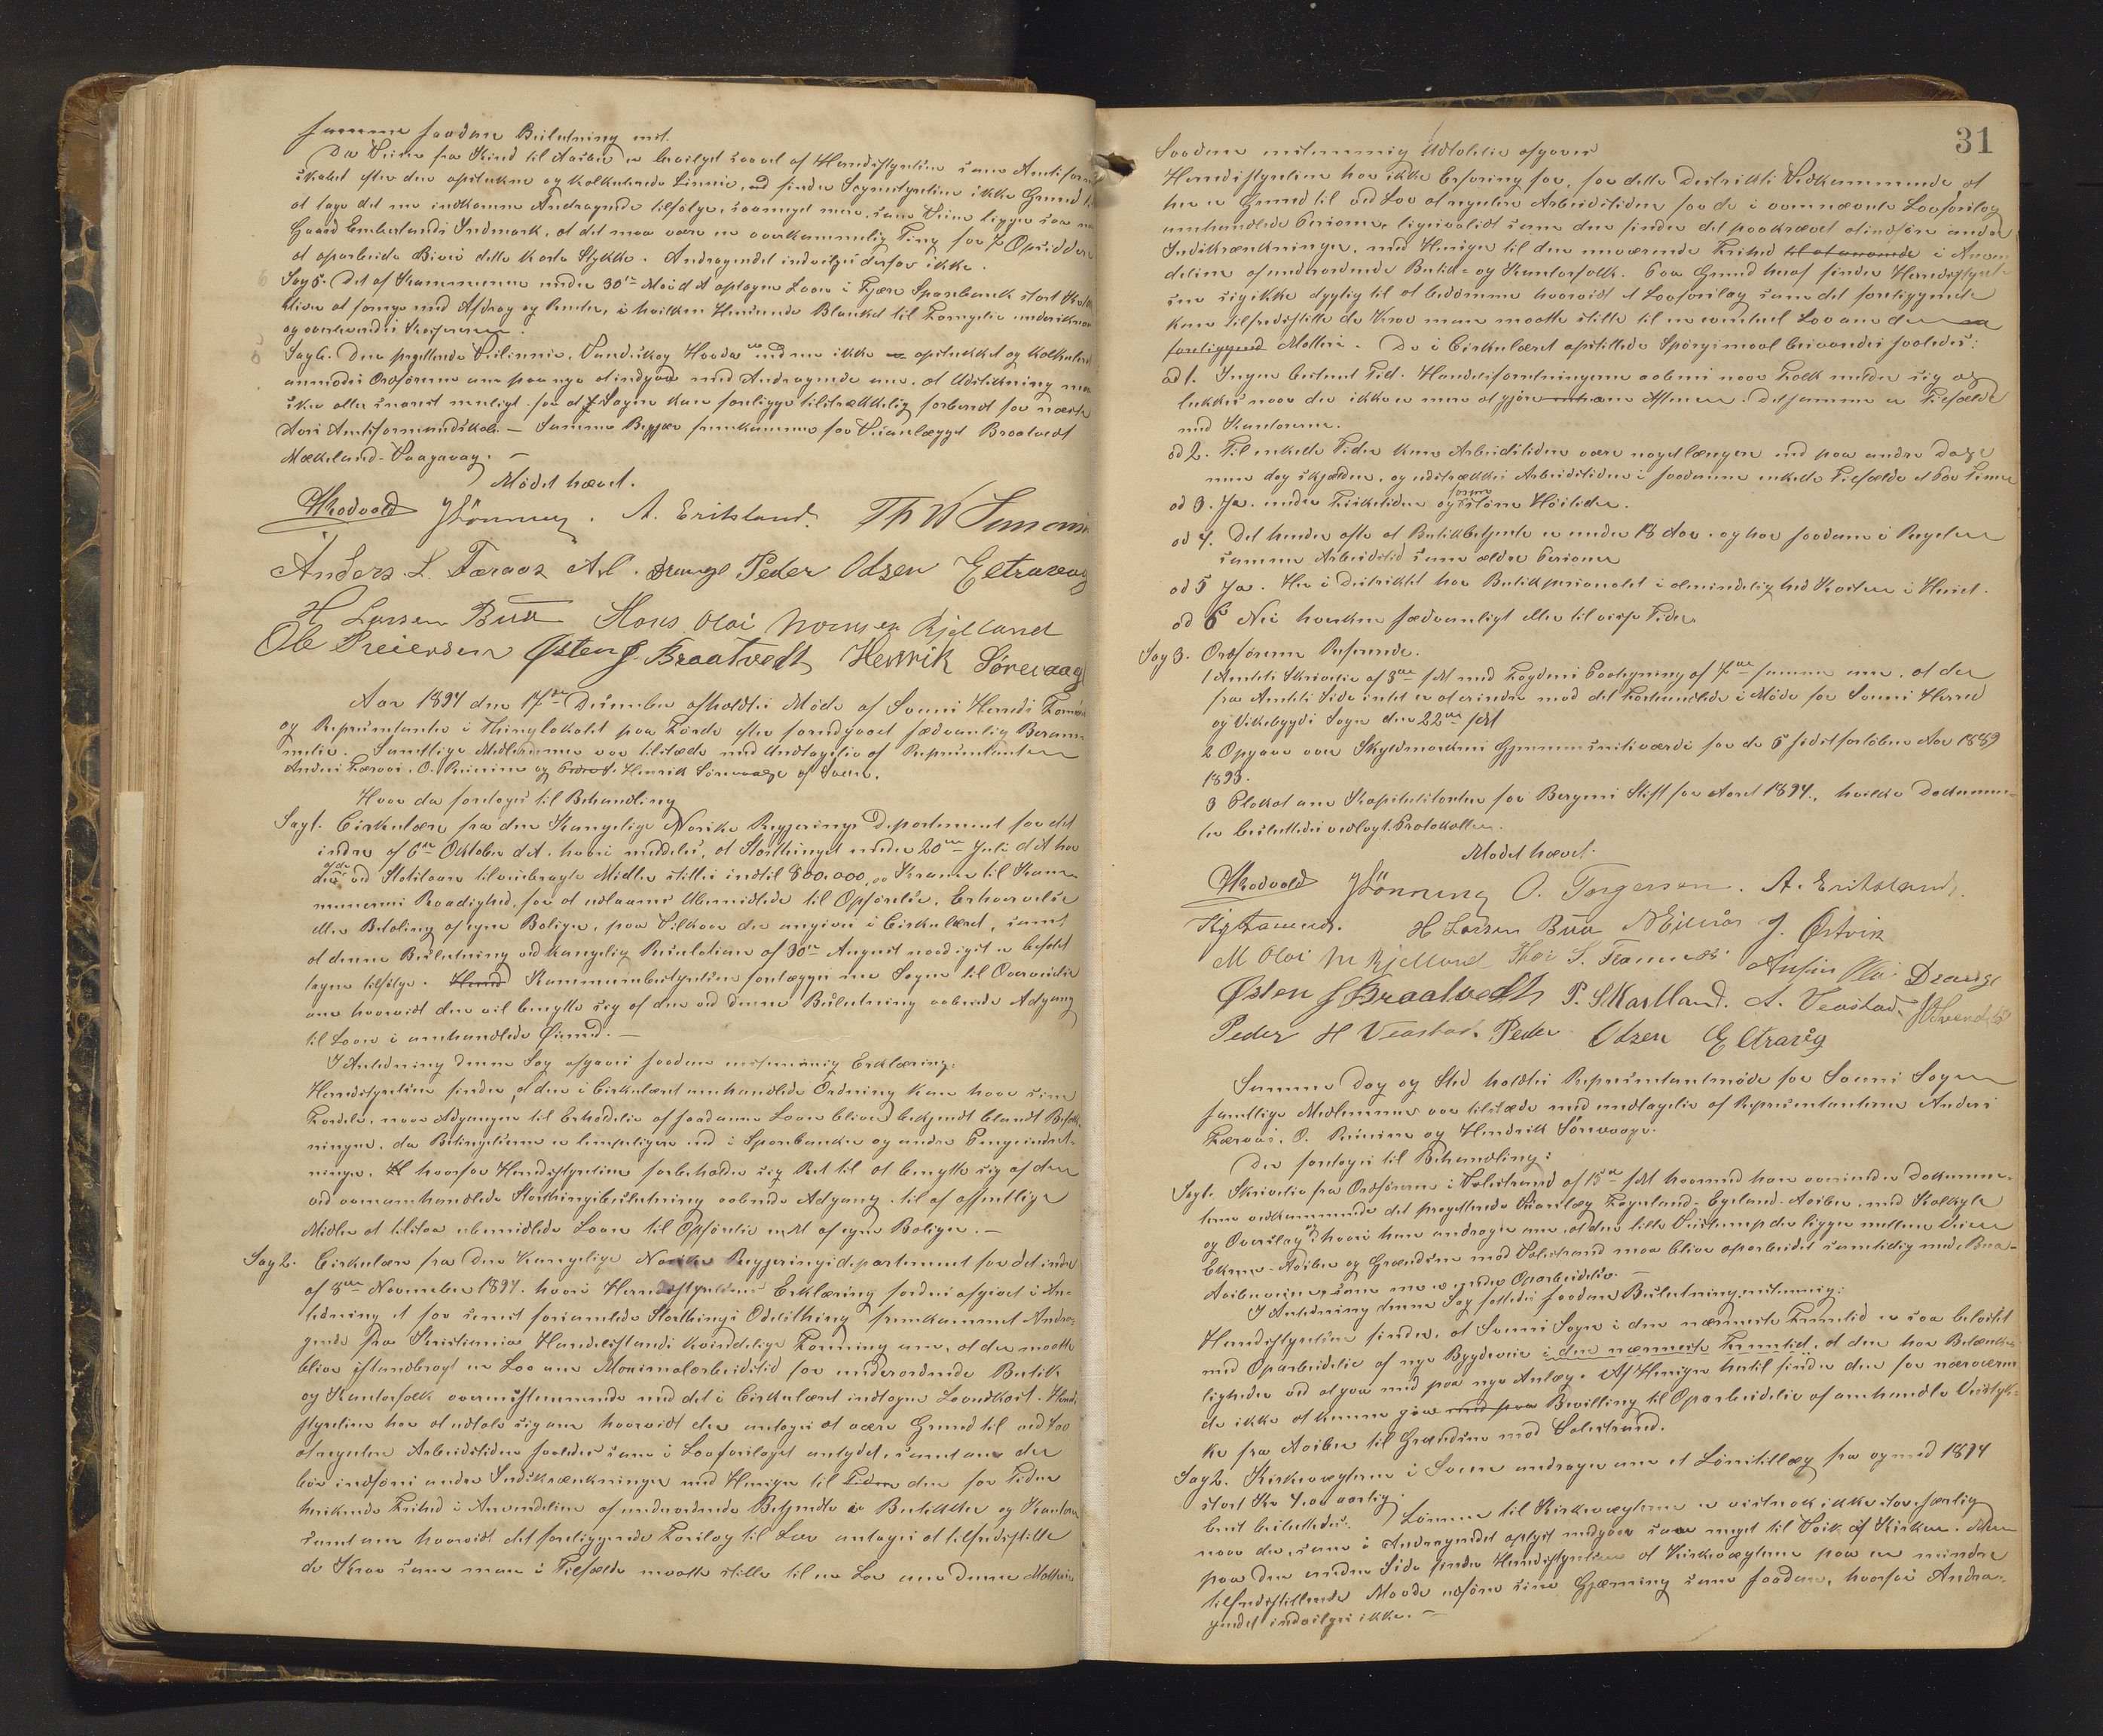 samme saadan Beslutning enst.
Da Veien fra Lind til Aarbø er bevilget saavel af Herredsstyrelsen som Amtsformand
skabet efter den opstukne og kalkulerede Linnie, finder Sognestyrelsen ikke Grund til
at tage det nu indkomne Andragende tilfølge, saameget mere som Veien ligger saa nær
Gaard Emberlands Indmark, at det maa være en overkommelig Ting for Opsidderne
at oparbeide Bivei dette korte Stykke. Andragendet indvilges derfor ikke.
Sag 5. Det af Kommunen under 30te d A optagne Laan i Fjære Sparebank stort Kr
bliver at fornye med Afdrag og Renter, i hvilken Henseende Blanket til Fornyelse underskreves
og overleveredes Kassereren.
Sag 6. Den projekterede Veilinnie, Vandvik og Hovda endnu ikke opstukket og kalkuleret
anmodes Ordføreren om paa nyt at indgaa med Andragende om, at Udstikning maa
ske aller snarest muligt for at Sagen kan foreligge tilstrækkelig forberedt for næste
Aars Amtsformandskab. — Samme Begjær fremkommer for Veianlægget Braatvedt
Mækeland-Vaagavaag. —
Mødet hævet.
HRodvold JLønning. A. Eriksland. Th W Simonsen
Anders. L. Færaas A.O. Drange Peder Odsen Eltravaag
H Larsen Buu Mons Olai Monsen Kjelland
Ole Reiersen Østen J. Braatvedt Henrik Sørevaag
Aar 1894 den 17de December afholdtes Møde af Sveens Herreds Formænd
og Repræsentanter i Thinglokalet paa Førde efter forudgaaet sædvanlig Beram-
melse. Samtlige Medlemmer var tilstæde med Undtagelse af Repræsentanterne
Anders Færaas, O. Reiersen og Henrik Sørevaage af Sveen.
Hvor da foretoges til Behandling
Sag 1. Cirkulære fra den Kongelige Norske Regjerings Departement for det
indre af 6te Oktober d.A. hvori meddeles, at Storthinget under 20de Juli d A har
af de ved Statslaan tilveiebragte Midler stillet indtil 800,000,00 Kroner til Kom-
munernes Raadighed, for at udlaanes Ubemidlede til Opførelse, Erhvervelse
eller Betaling af egne Boliger, paa Vilkaar der angives i Cirkulæret, samt
at denne Beslutning ved kongelig Resolution af 30te August naadigst er befalet
tagen tilfølge. Kommunebestyrelsen forelægges nu Sagen til Overveielse
om hvorvidt den vil benytte sig af den ved denne Beslutning aabnede Adgang
til Laan i omhandlede Øiemed. —
I Anledning denne Sag afgaves saadan enstemmig Erklæring:
Herredsstyrelsen finder, at den i Cirkulæret omhandlede Ordning kan have sine
Fordele, naar Adgangen til Erholdelse af saadanne Laan bliver bekjendt blandt Befolk-
ningen, da Betingelserne er lempeligere end i Sparebanker og andre Pengeindret-
ninger, hvorfor Herredsstyrelsen forbeholder sig Ret til at benytte sig af den
ved ovenomhandlede Storthingsbeslutning aabnede Adgang til af offentlige
Midler at tilstaa ubemidlede Laan til Opførelse m.M af egne Boliger. —
Sag 2. Cirkulære fra Den Kongelige Norske Regjeringsdepartement for det indre
af 8de November 1894. hvori Herredsstyrelsens Erklæring fordres afgivet i An-
ledning et for senest forsamlede Storthings Odelsthing fremkommet Andra-
gende fra Kristiania Handelsstands kvindelige Forening om, at der maatte
blive istandbragt en Lov om Maximalarbeidstid for underordnede Butik-
og Kontorfolk overensstemmende med det i Cirkulæret indtagne Lovudkast. Herreds-
styrelsen har at udtale sig om hvorvidt der antages at være Grund til ved Lov
at regulere Arbeidstiden saaledes som i Lovforslaget antydet, samt om der
bør indføres andre Indskrænkninger med Hensyn til den for Tiden
herskende Frihed i Anvendelsen af underordnede Betjente i Butikker og Kontorer
samt om hvorvidt det foreliggende Forslag til Lov antages at tilfredsstille
de Krav som man i Tilfælde maatte stille til en Lov om denne Materie
31
Saadan enstemmig Udtalelse afgaves
Herredsstyrelsen har ikke Erfaring for, for dette Distrikts Vedkommende, at
her er Grund til ved Lov at regulere Arbeidstiden for de i ovennævnte Lovforslag
omhandlede Personer, ligesaalidt som den finder det paakrævet at indføre andre
Indskrænkninger, med Hensyn til den nuværende Frihed til at anvende i Anven-
delsen af underordnede Butik- og Kontorfolk. Paa Grund heraf finder Herredsstyrel-
sen sig ikke dygtig til at bedømme hvorvidt et Lovforslag som det foreliggende
kan tilfredsstille de Krav man maatte stille til en eventuel Lov om den
foreliggend Materie. De i Cirkulæret opstillede Spørgsmaal besvaredes saaledes:
ad 1. Ingen bestemt Tid. Handelsforretningerne aabnes naar Folk melder sig og
lukkes naar der ikke er mere at gjøre om Aftenen. Detsamme er Tilfældet
med Kontorerne.
ad 2. Til enkelte Tider kan Arbeidstiden være noget længere end paa andre Dage
men dog skjelden, og udstrækkes Arbeidstiden i saadanne enkelte Tilfælde et Par Timer
ad 3. Ja. under Fisketiden og før større Høitider.
ad 4. Det hender ofte at Butikbetjente er under 18 Aar. og har saadanne i Regelen
samme Arbeidstid som ældre Personer
ad 5 Ja. Her i Distriktet har Butikpersonalet i almindelighed Kosten i Huset.
ad 6 Nei hverken sædvanligt eller til visse Tider
Sag 3. Ordføreren Refererede.
1 Amtets Skrivelse af 3de ds med Fogdens Paategning af 7de samme om, at der
fra Amtets Side intet er at erindre mod det Forhandlede i Møde for Sveens Herred
og Vikebygds Sogn den 22de f.M
2 Opgave over Skyldmarkens Gjennemsnitsværdi for de 5 sidst forløbne Aar 1889
1893.
3 Plakat om Kapitelstaxten for Bergens Stift for Aaret 1894., hvilke Dokumen-
ter besluttedes vedlagt Protokollen.
Mødet hævet.
HRodvold JLønning O. Torgersen. A. Eriksland.
H Larsen Buu J. Østvik
M Olai M Kjelland Drange
Østen J Braatvedt P. S Kartland. A. Veastad.
Peder H Veastad. Peder Odsen Eltravåg
Samme Dag og Sted holdtes Repræsentantmøde for Sveens Sogn
samtlige Medlemmer var tilstæde med undtagelse af Repræsentanterne Anders
Færaas, O. Reiersen og Hendrik Sørevaage.
Der foretoges til Behandling:
Sag 1. Skrivelse fra Ordføreren i Valestrand af 15de f.M hvormed han oversender Dokumen-
terne vedkommende det projekterede Veianlæg Fagerland-Egeland-Aaibø, med Kalkyle
og Overslag, hvori han andrager om, at den lille Veistump der ligger mellem Veien
Ekren-Aaibø og Grændsen mod Valestrand maa blive oparbeidet samtidig med Bua-
Aaibøveien, som nu er under Oparbeidelse. —
I Anledning denne Sag fattedes saadan Beslutning enstemmig:
Herredsstyrelsen finder, at Sveens Sogn i den nærmeste Fremtid er saa belastet
med Oparbeidelse af nye Bygdeveie i den nærmeste Fremtid, at den har Betænke-
ligheder ved at gaa med paa nye Anlæg. Af Hensyn hertil finder den for nærværen-
de ikke at kunne give med paa Bevilling til Oparbeidelse af omhandlede Veistyk-
ke fra Aaibø til Grændsen mod Valestrand.
Sag 2. Kirkevægteren i Sveen andrager om et Lønstillæg fra og med 1894
stort Kr 4,00 aarlig.
Enst besluttedes: Lønnen til Kirkevægteren er vistnok ikke stor, særlig
naar der, som i Andragendet oplyst medgaar saa meget til Vask af Kirken. Men
paa den anden Side finder Herredsstyrelsen at Kirkevægteren paa en mindre
tilfredsstillende Maade udfører sine Gjerning som saadan, hvorfor Andra-
gendet indvilges ikke. —